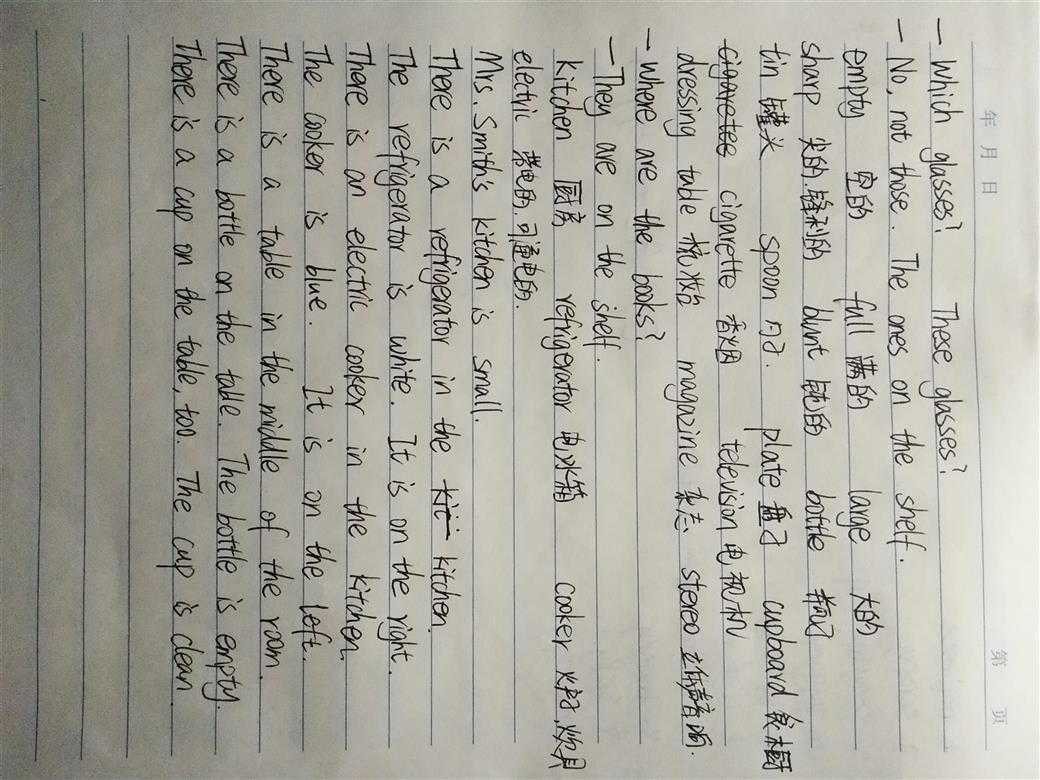 年 月 日 第 页
— Which glasses? These glasses?
— No, not those. The ones on the shelf.
empty 空的 full 满的 large 大的
sharp 尖的,锋利的 blunt 钝的 bottle 瓶子
tin 罐头 spoon 勺子. plate 盘子 cupboard 食橱
cigaretee cigarette 香烟 television 电视机
dressing table 梳妆台 magazine 杂志 stereo 立体声音响.
— Where are the books?
— They are on the shelf.
kitchen 厨房 refrigerator 电冰箱 cooker 炉子,炊具
electric 带电的,可通电的.
Mrs. Smith's kitchen is small.
There is a refrigerator in the kit kitchen.
The refrigerator is white. It is on the right.
There is an electric cooker in the kitchen.
The cooker is blue. It is on the left.
There is a table in the middle of the room.
There is a bottle on the table. The bottle is empty.
There is a cup on the table, too. The cup is clean.